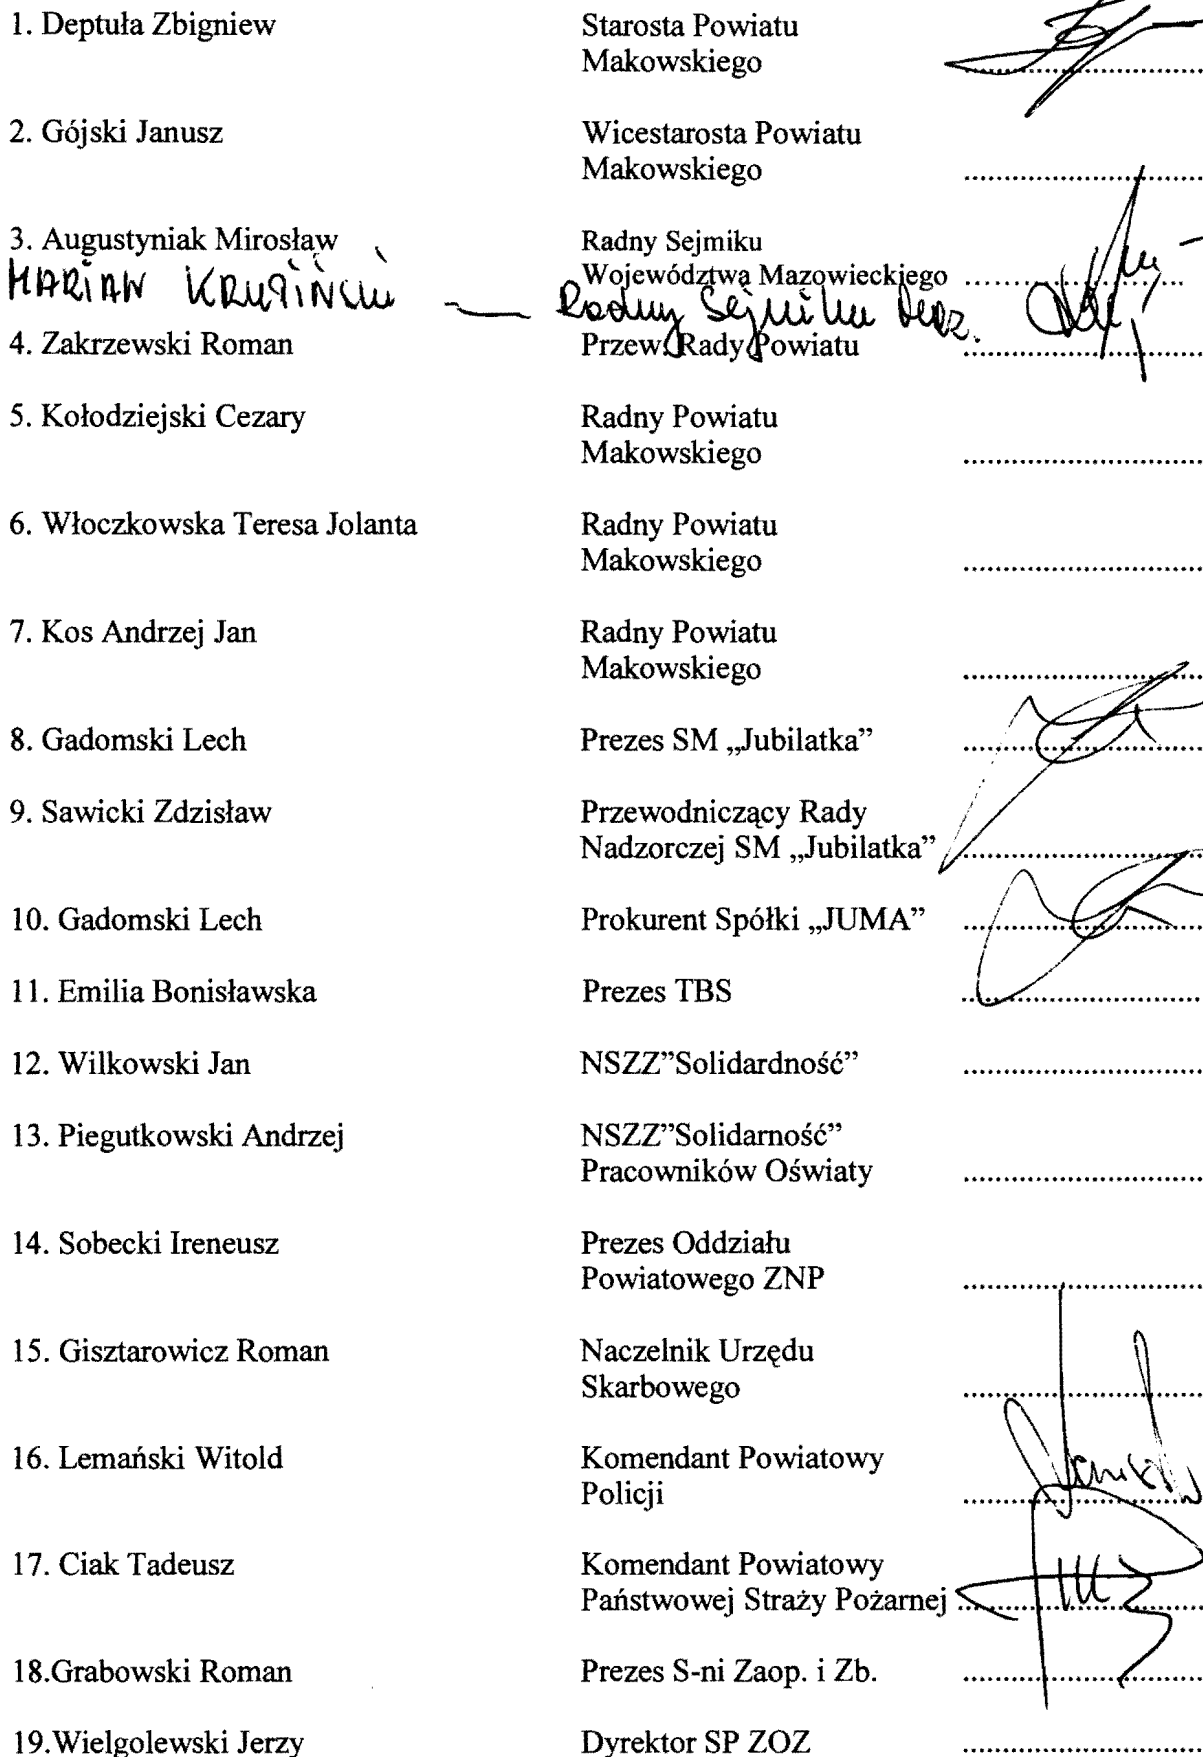 1. Deptuła Zbigniew Starosta Powiatu
Makowskiego ....................
2. Gójski Janusz Wicestarosta Powiatu
Makowskiego ....................
3. Augustyniak Mirosław Radny Sejmiku
Województwa Mazowieckiego ....................
MARIAN KRUPIŃSKI — Radny Sejmiku
4. Zakrzewski Roman Przew. Rady Powiatu ....................
5. Kołodziejski Cezary Radny Powiatu
Makowskiego ....................
6. Włoczkowska Teresa Jolanta Radny Powiatu
Makowskiego ....................
7. Kos Andrzej Jan Radny Powiatu
Makowskiego ....................
8. Gadomski Lech Prezes SM „Jubilatka” ....................
9. Sawicki Zdzisław Przewodniczący Rady
Nadzorczej SM „Jubilatka” ....................
10. Gadomski Lech Prokurent Spółki „JUMA” ....................
11. Emilia Bonisławska Prezes TBS ....................
12. Wilkowski Jan NSZZ”Solidardność” ....................
13. Piegutkowski Andrzej NSZZ”Solidarność”
Pracowników Oświaty ....................
14. Sobecki Ireneusz Prezes Oddziału
Powiatowego ZNP ....................
15. Gisztarowicz Roman Naczelnik Urzędu
Skarbowego ....................
16. Lemański Witold Komendant Powiatowy
Policji ....................
17. Ciak Tadeusz Komendant Powiatowy
Państwowej Straży Pożarnej ....................
18.Grabowski Roman Prezes S-ni Zaop. i Zb. ....................
19.Wielgolewski Jerzy Dyrektor SP ZOZ ....................